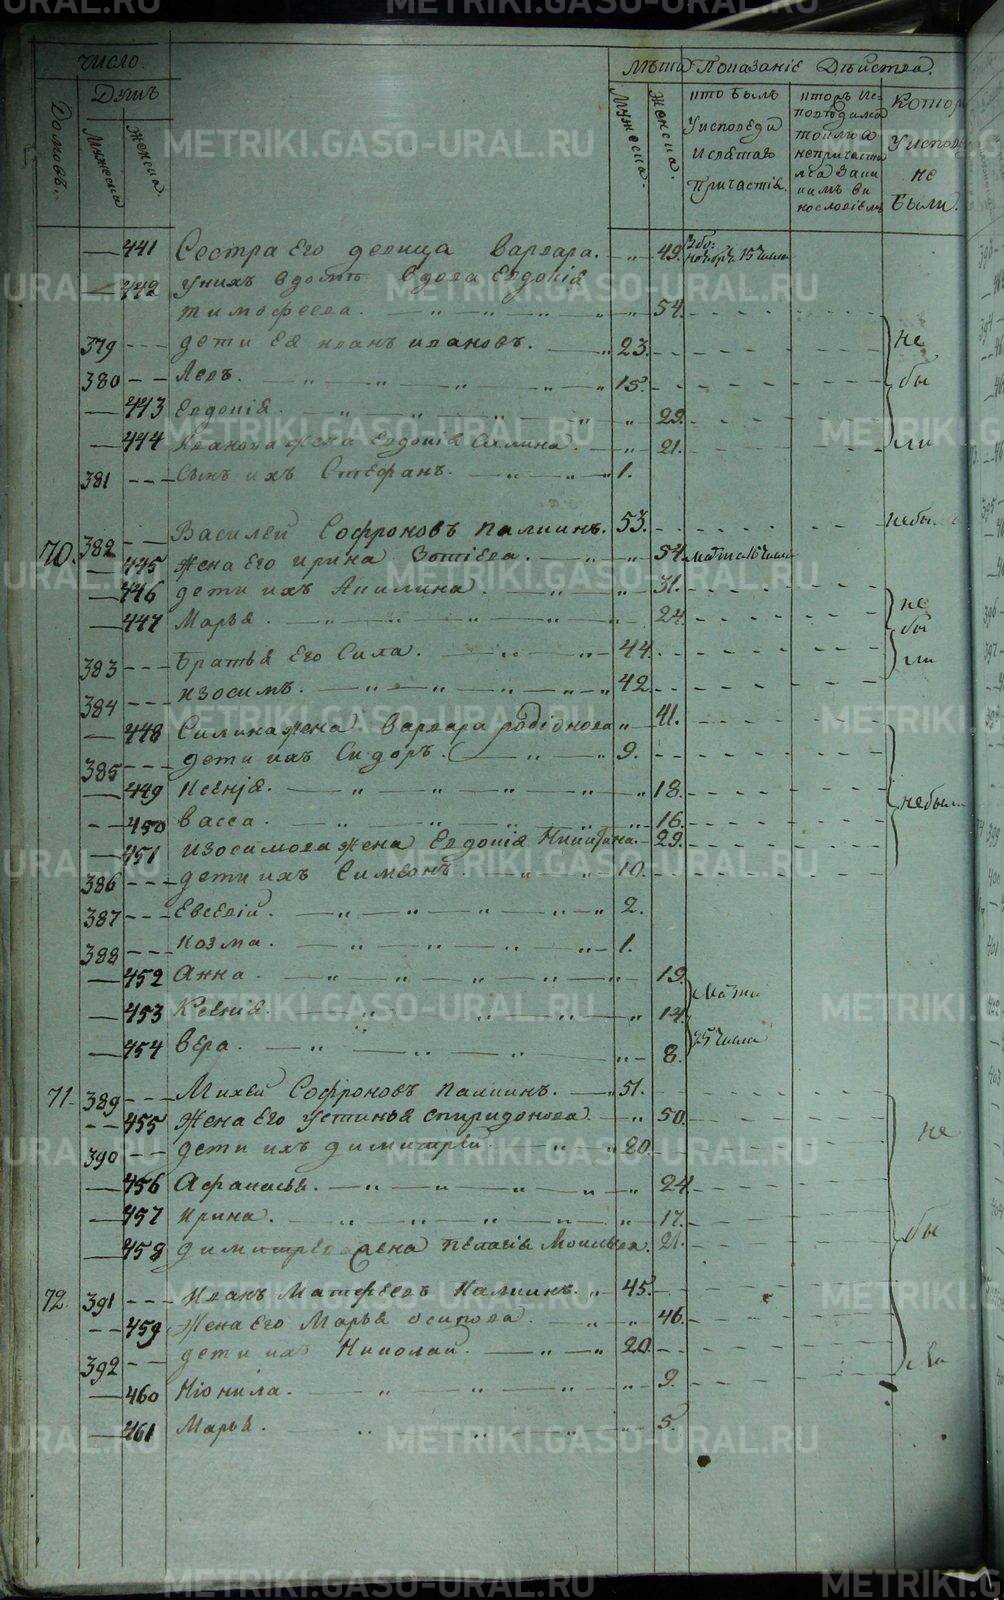 METRIKI.GASO-URAL.RU
число
Домовъ.
Душъ
Мужеска
Женска.
Лѣта
Мужеска.
Женска.
Показаніе Дѣйства.
кто былъ
У исповеди
и святаго
Причастія.
не причасти
Котор
У испов
не
были.
— 441 Сестра Его девица Варвара. — „ — 49.
ноября 15 числа
— 442 У нихъ вдовъ Вдова Евдокія
тимофеева. — „ — „ — 54.
379 — дети Ея иванъ ивановъ. — 23.
380 — Левъ. — „ — „ — 15.
— 443 Евдокія. — „ — „ — 29.
— 444 Иванова жена Евдокія — „ — 21.
381 — Сынъ ихъ Стефанъ. — „ — 1.
не
бы
ли
70. 382 — Василей Софроновъ Палкинъ. 53. небы
— 445 Жена Его ирина Зотіева. — „ — 54. марта 16 числа
— 446 дети ихъ Акилина. — „ — 31.
— 447 Марья. — „ — „ — 24.
383 — Братья Его Сила. — „ — 44.
384 — изосимъ. — „ — „ — 42.
не
бы
ли
— 448 Силина жена Варвара родіонова „ — 41.
385 — дети ихъ Сидоръ. — „ — 9.
— 449 Ксенія. — „ — „ — 18.
— 450 Васса. — „ — „ — 16.
— 451 изосимова жена Евдокія Никитина. — 29.
386 — дети ихъ Симеонъ. — „ — 10.
387 — Евсевій. — „ — „ — 2.
388 — Козма. — „ — „ — 1.
небыли
— 452 Анна. — „ — „ — 19.
— 453 Ксенія. — „ — „ — 14.
— 454 Вера. — „ — „ — 8.
марта
25 числа
71. 389 — Михей Софроновъ Палкинъ. — „ — 51.
— 455 Жена Его Устинья Спиридонова — „ — 50.
390 — дети ихъ димитрей. — „ — 20.
— 456 Афанасья. — „ — „ — 24.
— 457 Ирина. — „ — „ — 17.
— 458 димитрева жена Пелагія — 21.
72. 391 — Иванъ Матфеевъ Калкинъ. „ — 45.
— 459 Жена Его Марья осипова. — „ — 46.
392 — дети ихъ Николай. — „ — 20.
— 460 Ніонила. — „ — „ — 9.
— 461 Марья. — „ — „ — 5.
не
бы
ли